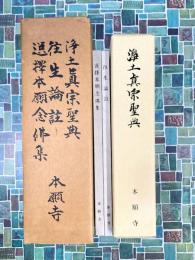 浄土真宗聖典
往生論註
選擇本願念佛集
本願寺
往生論註
選擇本願念佛集
浄土真宗聖典
本願寺